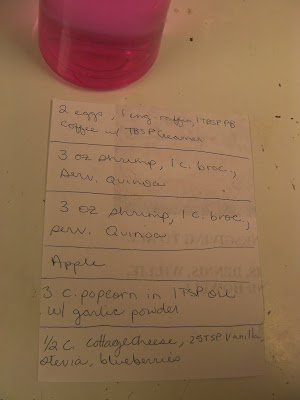 2 eggs, 1 eng. muffin, 1 TBSP PB
Coffee w/ TBSP Creamer
3 oz shrimp, 1 c. broc.,
serv. Quinoa
3 oz shrimp, 1 c. broc,
serv. Quinoa
Apple
3 c. popcorn in 1 TSP. oil
w/ garlic powder
1/2 c. Cottage Cheese, .25 TSP Vanilla,
stevia, blueberries